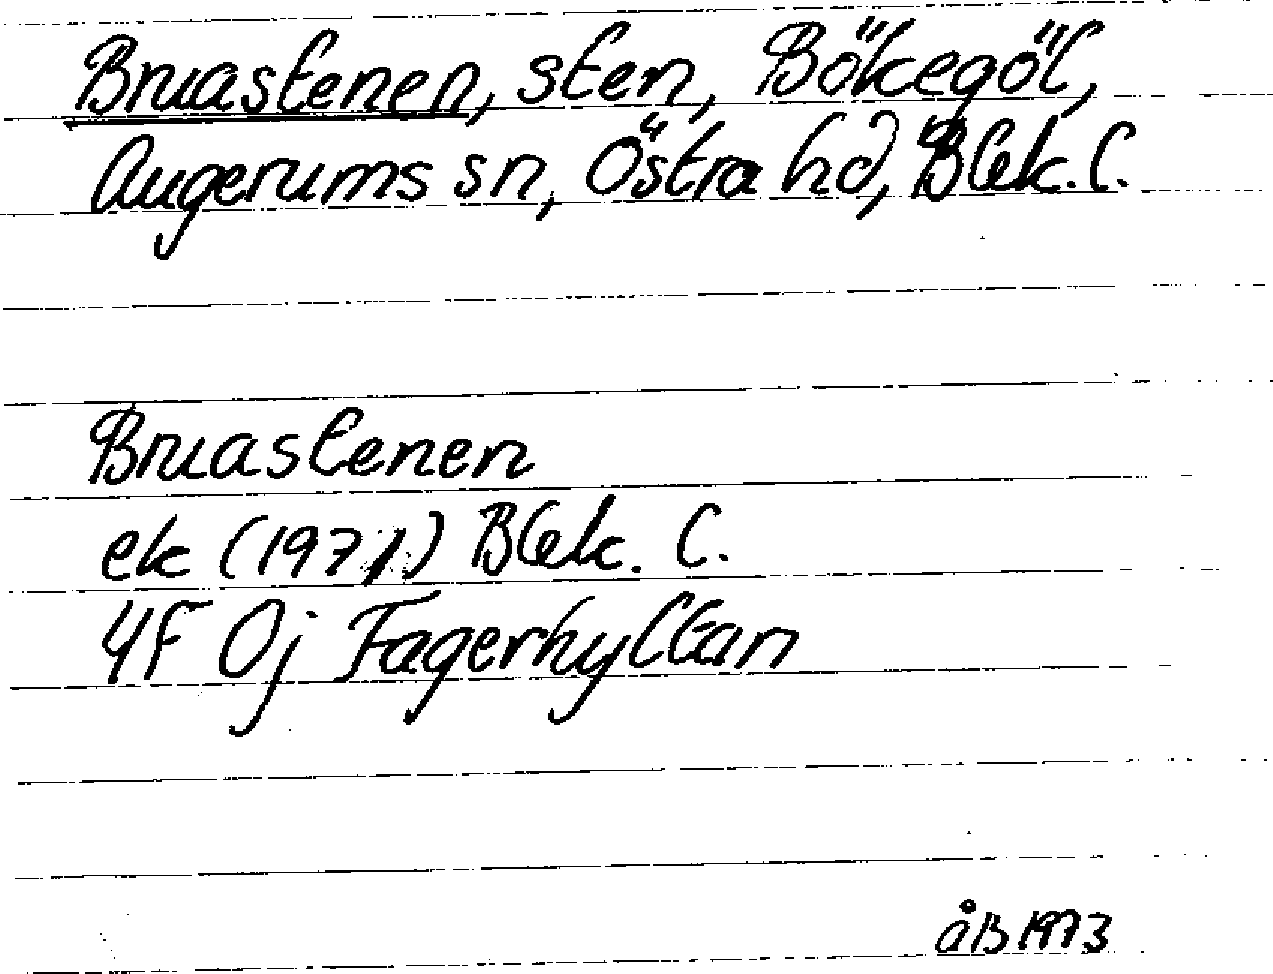 Bruastenen, sten, Bökegöl,
Augerums sn, Östra hd, Blek. l.
Bruastenen
ek (1971) Blek. l.
4F 0j Fagerhyltan
åB 1973